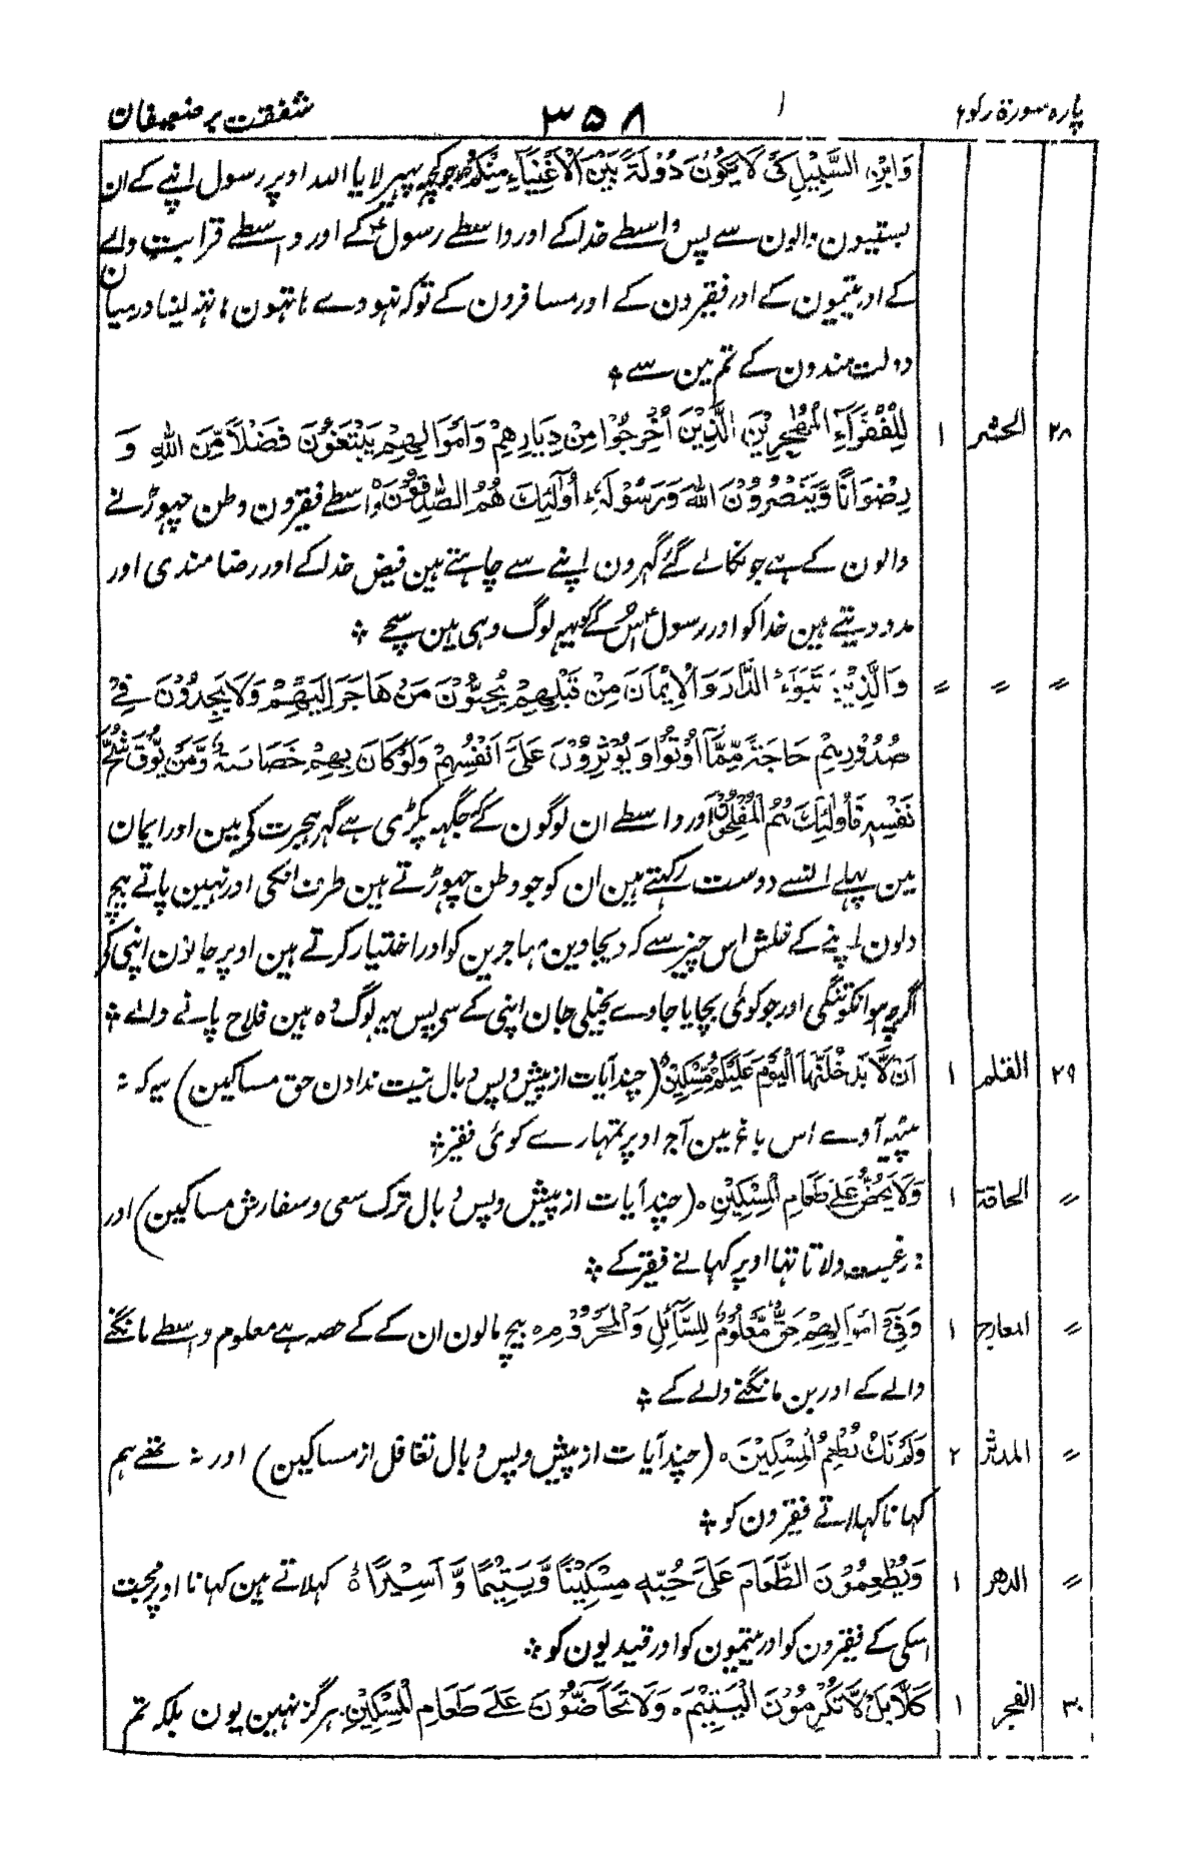 پارہ سورۃ رکوع ۱ ۳۵۸ شفقت بر ضعیفان
وَابْنِ السَّبِيْلِ كَیْ لَا يَكُوْنَ دُوْلَةًۢ بَيْنَ الْاَغْنِيَآءِ مِنْكُمْ جو کچہہ پہیر لایا اللہ اوپر رسول اپنے کے ان
بستیون والون سے پس واسطے خدا کے اور واسطے رسولؐ کے اور واسطے قرابت والے
کے اور یتیمون کے اور فقیرون کے اور مسافرون کے تو کہ نہووے ہاتہون ہاتہہ لینا درمیان
دولت مندون کے تم مین سے ÷
۲۸ الحشر ۱ لِلْفُقَرَآءِ الْمُهٰجِرِيْنَ الَّذِيْنَ اُخْرِجُوْا مِنْ دِيَارِهِمْ وَاَمْوَالِهِمْ يَبْتَغُوْنَ فَضْلًا مِّنَ اللّٰهِ وَ
رِضْوَانًا وَّيَنْصُرُوْنَ اللّٰهَ وَرَسُوْلَهٗ اُولٰٓئِكَ هُمُ الصّٰدِقُوْنَ واسطے فقیرون وطن چہوڑنے
والون کے ہے جو نکالے گئے گہرون اپنے سے چاہتے ہین فیض خدا کے اور رضامندی اور
مدد دیتے ہین خدا کو اور رسولؐ اس کے کو یہہ لوگ وہی ہین سچے ÷
〃 〃 〃 وَالَّذِيْنَ تَبَوَّءُ الدَّارَ وَالْاِيْمَانَ مِنْ قَبْلِهِمْ يُحِبُّوْنَ مَنْ هَاجَرَ اِلَيْهِمْ وَلَا يَجِدُوْنَ فِيْ
صُدُوْرِهِمْ حَاجَةً مِّمَّآ اُوْتُوْا وَيُؤْثِرُوْنَ عَلٰٓى اَنْفُسِهِمْ وَلَوْ كَانَ بِهِمْ خَصَاصَةٌ وَّمَنْ يُّوْقَ شُحَّ
نَفْسِهٖ فَاُولٰٓئِكَ هُمُ الْمُفْلِحُوْنَ اور واسطے ان لوگون کے جگہہ پکڑی ہے گہر ہجرت کے مین اور ایمان
مین پہلے انسے دوست رکہتے ہین ان کو جو وطن چہوڑتے ہین طرف انکی اور نہین پاتے بیچ
دلون اپنے کے خلش اس چیز سے کہ دیجاوین مہاجرین کو اور اختیار کرتے ہین اوپر جانون اپنی کو
اگرچہ ہو انکو تنگی اور جو کوئی بچایا جاوے بخیلی جان اپنی کے سے پس یہہ لوگ وہ ہین فلاح پانے والے ÷
۲۹ القلم ۱ اَنْ لَّا يَدْخُلَنَّهَا الْيَوْمَ عَلَيْكُمْ مِّسْكِيْنٌ (چند آیات از پیش و پس وبال نیت ندادن حق مساکین) یہ کہ نہ
پیٹہہ آوے اس باغ مین آج اوپر تمہارے کوئی فقیر ÷
〃 الحاقة ۱ وَلَا يَحُضُّ عَلٰى طَعَامِ الْمِسْكِيْنِ ۰ (چند آیات از پیش و پس وبال ترک سعی و سفارش مساکین) اور
نہ رغبت دلاتا تہا اوپر کہانے فقیر کے ÷
〃 المعارج ۱ وَفِيْٓ اَمْوَالِهِمْ حَقٌّ مَّعْلُوْمٌ لِلسَّآئِلِ وَالْمَحْرُوْمِ ۰ بیچ مالون ان کے کے حصہ ہے معلوم واسطے مانگنے
والے کے اور بن مانگنے والے کے ÷
〃 المدثر ۲ وَلَمْ نَكُ نُطْعِمُ الْمِسْكِيْنَ ۰ (چند آیات از پیش و پس وبال تغافل از مساکین) اور نہ تھے ہم
کہانا کہلاتے فقیرون کو ÷
〃 الدهر ۱ وَيُطْعِمُوْنَ الطَّعَامَ عَلٰى حُبِّهٖ مِسْكِيْنًا وَّيَتِيْمًا وَّ اَسِيْرًا ۰ کہلاتے ہین کہانا اوپر محبت
اسکی کے فقیرون کو اور یتیمون کو اور قیدیون کو ÷
۳۰ الفجر ۱ كَلَّا بَلْ لَّا تُكْرِمُوْنَ الْيَتِيْمَ ۰ وَلَا تَحَآضُّوْنَ عَلٰى طَعَامِ الْمِسْكِيْنِ ۰ ہرگز نہین یون بلکہ تم